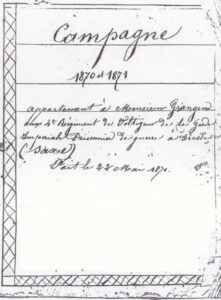 Campagne
1870 et 1871
appartenant à Monsieur Grangon
aux 4e Régiment de Voltigeur de la Garde
Impériale Prisonnier de guerre à Dresde
(Saxe)
Fait le 22 Mai 1871.